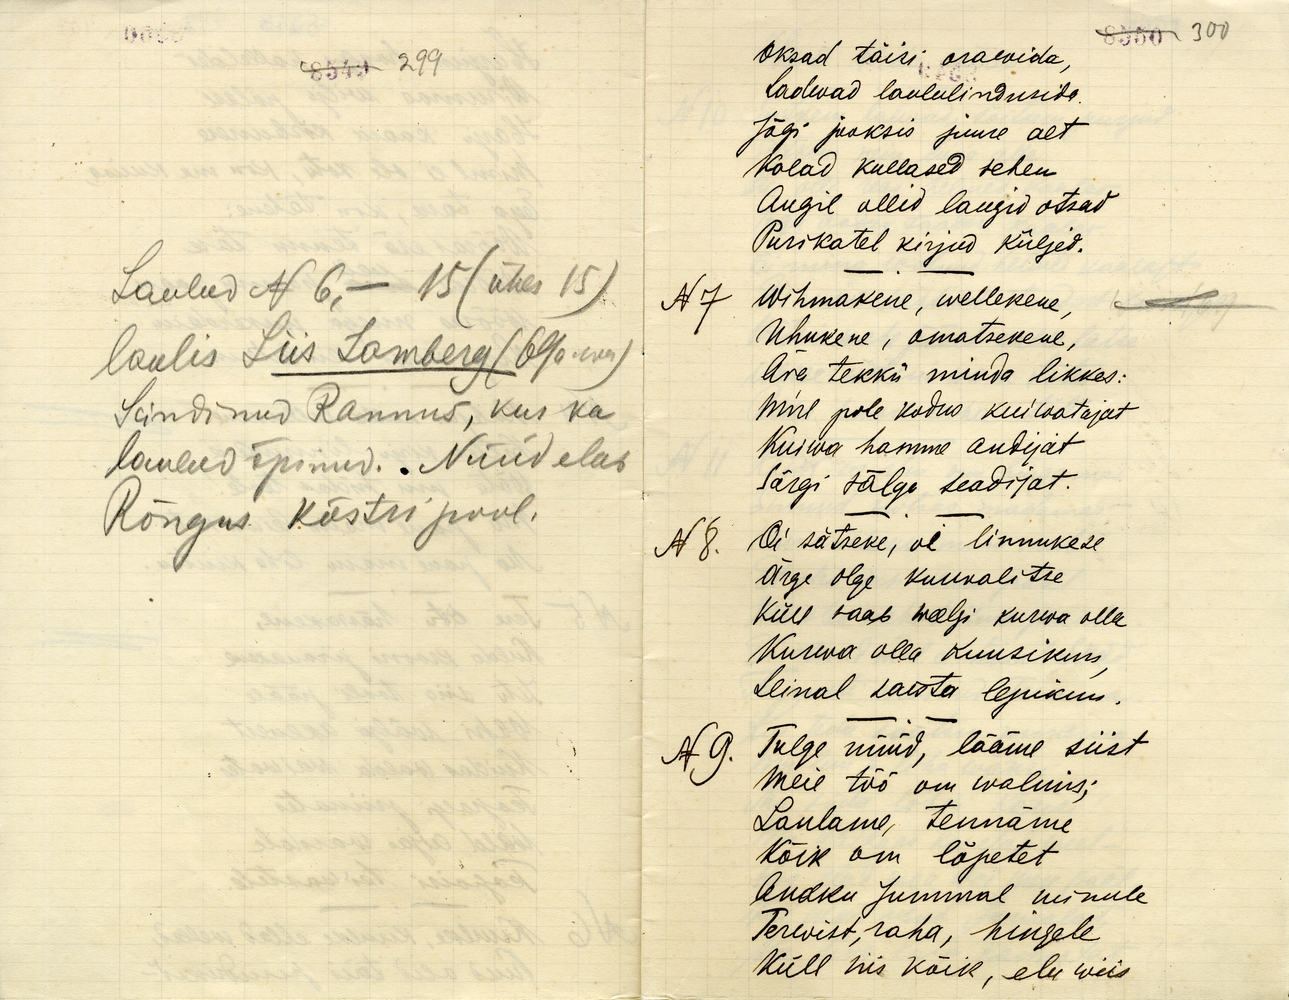 8549 299
Laulud N 6,— 15 (ühes 15)
laulis Liis Lamberg (69/a. wa)
Sündinud Rannus, kus ka
laulud õpinud. . Nüüd elab
Rõngus Köstri pool.
8550 300
Oksad täis orawida,
Ladwad laululindusida.
Jõgi jooksis juure alt
Kalad kullased sehen
Augil ollid laugid otsad
Purikatel kirjud küljed.
N 7 Wihmakene, wellekene,
Uhukene, omatsekene,
Ära tekkü minda likkes:
Miul pole kodus kuiwatajat
Kuiwa hamme andijat
Särgi sälga seadijat.
N 8. Oi sätseke, oi linnukese
Ärge olge kurwalitse
Küll saab wæljs kurwa olla
Kurwa olla kuusikun,
Leinal saista lepikun.
N 9. Tulge nüüd, lääme siist
Meie töö om walmis;
Laulame, tennäme
Kõik om lõpetet
Andku Jummal minule
Terwist, raha, hingele
Küll siis kõik, elu wiis